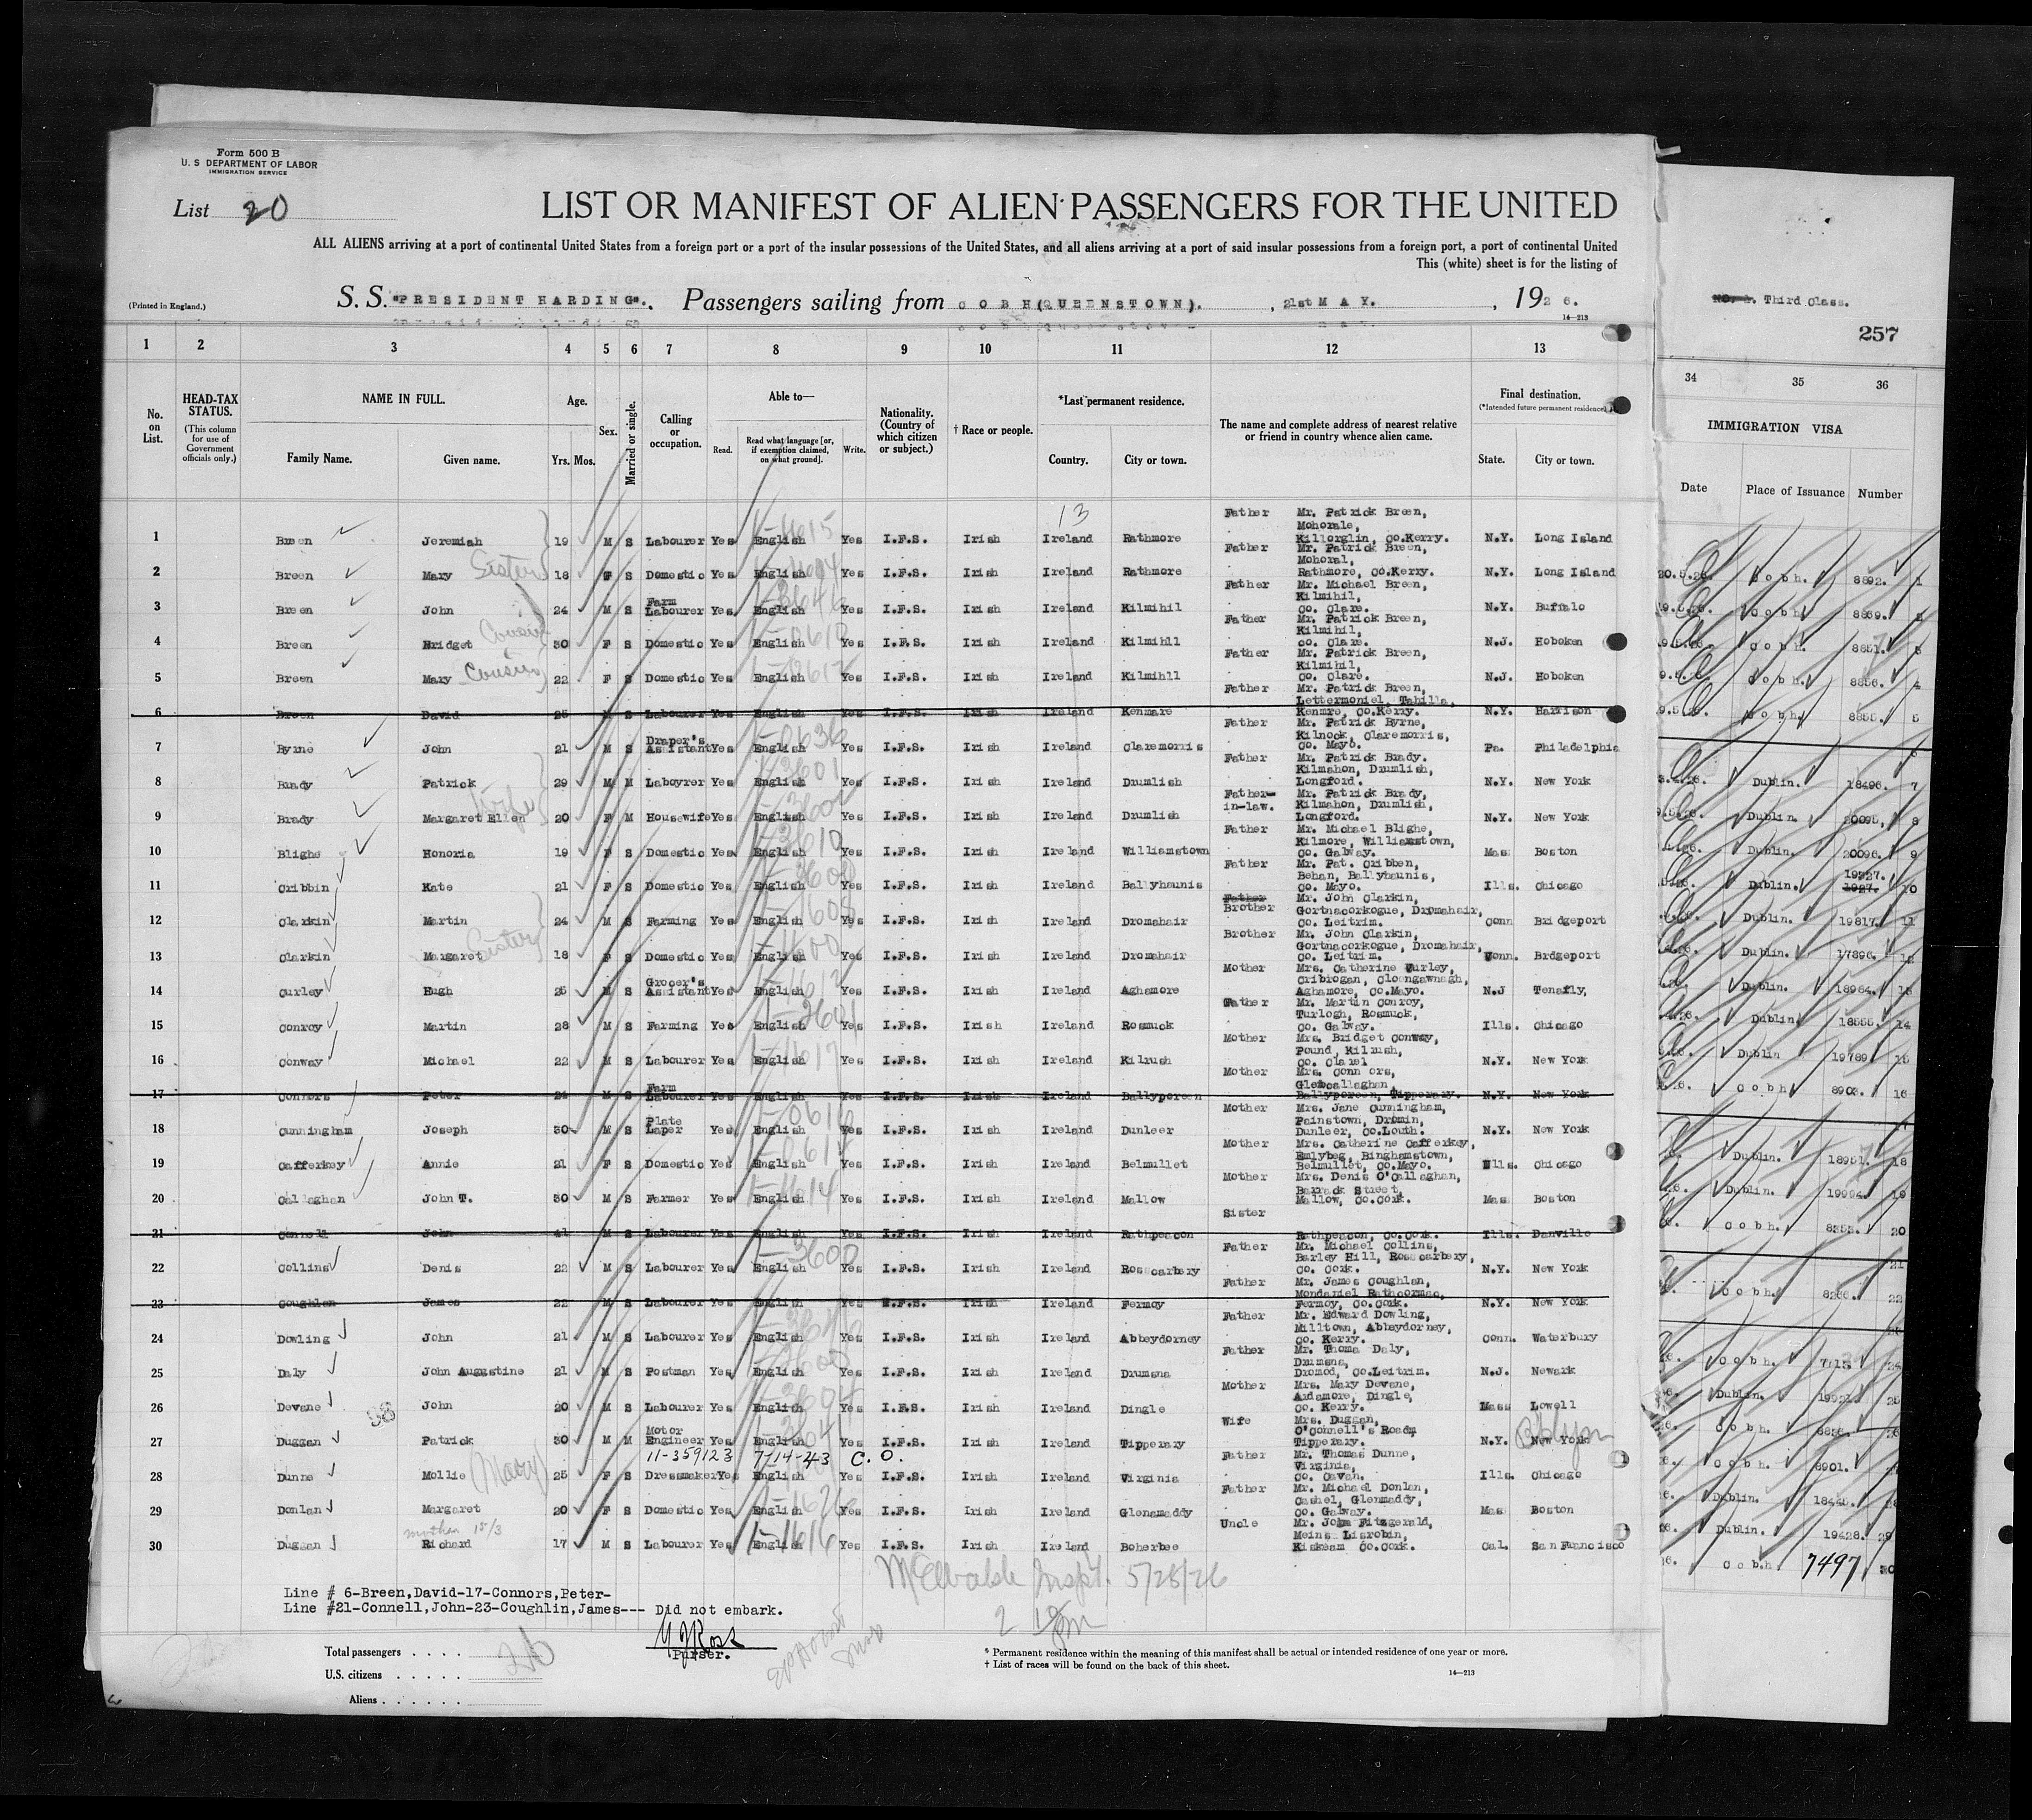 Form 500 B
U. S DEPARTMENT OF LABOR
IMMIGRATION SERVICE
List 20
LIST OR MANIFEST OF ALIEN PASSENGERS FOR THE UNITED
ALL ALIENS arriving at a port of continental United States from a foreign port or a port of the insular possessions of the United States, and all aliens arriving at a port of said insular possessions from a foreign port, a port of continental United
This (white) sheet is for the listing of
(Printed in England.)
S. S. "PRESIDENT HARDING". Passengers sailing from COBH(QUEENSTOWN). , 21st MAY. , 1926.
14-213
Third Class.
257
1 2 3 4 5 6 7 8 9 10 11 12 13
34 35 36
No. on List.
HEAD-TAX STATUS.
(This column for use of Government officials only.)
NAME IN FULL.
Family Name. Given name.
Age.
Yrs. Mos.
Sex.
Married or single.
Calling or occupation.
Able to—
Read. Read what language [or, if exemption claimed, on what ground]. Write.
Nationality. (Country of which citizen or subject.)
† Race or people.
*Last permanent residence.
Country. City or town.
The name and complete address of nearest relative or friend in country whence alien came.
Final destination.
(*Intended future permanent residence)
State. City or town.
IMMIGRATION VISA
Date Place of Issuance Number
13
1 Breen Jeremiah 19 M S Labourer Yes English Yes I.F.S. Irish Ireland Rathmore Father Mr. Patrick Breen, Mohorale, Killorglin, Co.Kerry. N.Y. Long Island
2 Breen Mary Sister 18 F S Domestic Yes English Yes I.F.S. Irish Ireland Rathmore Father Mr. Patrick Breen, Mohoral, Rathmore, Co.Kerry. N.Y. Long Island
3 Breen John 24 M S Farm Labourer Yes English Yes I.F.S. Irish Ireland Kilmihil Father Mr. Michael Breen, Kilmihil, Co. Clare. N.Y. Buffalo
4 Breen Bridget Cousin 30 F S Domestic Yes English Yes I.F.S. Irish Ireland Kilmihll Father Mr. Patrick Breen, Kilmihil, Co. Clare. N.J. Hoboken
5 Breen Mary Cousin 22 F S Domestic Yes English Yes I.F.S. Irish Ireland Kilmihll Father Mr. Patrick Breen, Kilmihil, Co. Clare. N.J. Hoboken
6 Breen David 25 M S Labourer Yes English Yes I.F.S. Irish Ireland Kenmare Father Mr. Patrick Breen, Lettermoniel, Tahilla, Kenmre, Co.Kerry. N.Y. Harrison
7 Byrne John 21 M S Draper's Assistant Yes English Yes I.F.S. Irish Ireland Claremorris Father Mr. Patrick Byrne, Kilnock, Claremorris, Co. Mayo. Pa. Philadelphia
8 Brady Patrick 29 M M Laboyrer Yes English Yes I.F.S. Irish Ireland Drumlish Father Mr. Patrick Brady. Kilmahon, Drumlish, Longford. N.Y. New York
9 Brady Margaret Ellen Wife 20 F M Housewife Yes English Yes I.F.S. Irish Ireland Drumlish Father-in-law. Mr. Patrick Brady, Kilmahon, Drumlish, Longford. N.Y. New York
10 Blighe Honoria 19 F S Domestic Yes English Yes I.F.S. Irish Ireland Williamstown Father Mr. Michael Blighe, Kilmore, Williamstown, Co. Galway. Mas Boston
11 Cribbin Kate 21 F S Domestic Yes English Yes I.F.S. Irish Ireland Ballyhaunis Father Mr. Pat. Cribben, Behan, Ballyhaunis, Co. Mayo. Ills. Chicago
12 Clarkin Martin 24 M S Farming Yes English Yes I.F.S. Irish Ireland Dromahair Father Brother Mr. John Clarkin, Gortnacorkogue, Dromahair, Co. Leitrim. Conn Bridgeport
13 Clarkin Margaret Sister 18 F S Domestic Yes English Yes I.F.S. Irish Ireland Dromahair Brother Mr. John Clarkin, Gortnacorkogue, Dromahair, Co. Leitrim. Conn. Brdgeport
14 Curley Hugh 25 M S Grocer's Assistant Yes English Yes I.F.S. Irish Ireland Aghamore Mother Mrs. Catherine Curley, Cribrogan, Cloongawnagh, Aghamore, Co.Mayo. N.J Tenafly,
15 Conroy Martin 28 M S Farming Yes English Yes I.F.S. Irish Ireland Rosmuck Father Mr. Martin Conroy, Turlogh, Rosmuck, Co. Galway. Ills. Chicago
16 Conway Michael 22 M S Labourer Yes English Yes I.F.S. Irish Ireland Kilrush Mother Mrs. Bridget Conway, Pound, Kilrush, Co. Clarel N.Y. New York
17 Connors Peter 24 M S Farm Labourer Yes English Yes I.F.S. Irish Ireland Ballyporeen Mother Mrs. Connors, Glebcallaghan, Ballyporeen, Tipperary. N.Y. New York
18 Cunningham Joseph 30 M S Plate Laper Yes English Yes I.F.S. Irish Ireland Dunleer Mother Mrs. Jane Cunningham, Painstown, Dromin, Dunleer, Co.Louth. N.Y. New York
19 Cafferkey Annie 21 F S Domestic Yes English Yes I.F.S. Irish Ireland Belmullet Mother Mrs. Catherine Cafferkey, Emlybeg, Binghamstown, Belmullet, Co.Mayo. Ills. Chicago
20 Callaghan John T. 30 M S Farmer Yes English Yes I.F.S. Irish Ireland Mallow Mother Mrs. Denis O'Callaghan, Barrack Street, Mallow, Co.Cork. Mas Boston
21 Connell John 41 M S Labourer Yes English Yes I.F.S. Irish Ireland Rathpeacon Sister Rathpeacon, Co.Cork. Ills. Danville
22 Collins Denis 22 M S Labourer Yes English Yes I.F.S. Irish Ireland Rosscarbery Father Mr. Michael Collins, Barley Hill, Rosscarbery, Co. Cork. N.Y. New York
23 Coughlan James 22 M S Labourer Yes English Yes I.F.S. Irish Ireland Fermoy Father Mr. James Coughlan, Mondaniel Rathcormac, Fermoy, Co.Cork. N.Y. New York
24 Dowling John 21 M S Labourer Yes English Yes I.F.S. Irish Ireland Abbeydorney Father Mr. Edward Dowling, Milltown, Abbeydorney, Co. Kerry. Conn. Waterbury
25 Daly John Augustine 21 M S Postman Yes English Yes I.F.S. Irish Ireland Drumsna Father Mr. Thoma Daly, Drumsna, Dromod, Co.Leitrim. N.J. Newark
26 Devane John 20 M S Labourer Yes English Yes I.F.S. Irish Ireland Dingle Mother Mrs. Mary Devane, Ardamore, Dingle, Co. Kerry. Mass Lowell
27 Duggan Patrick 30 M M Motor Engineer Yes English Yes I.F.S. Irish Ireland Tipperary Wife Mrs. Duggan, O'Connell's Roadm Tipperary. N.Y. New York Bklyn
11-359123 7-14-43 C. O.
28 Dunne Mollie (Mary) 25 F S Dressmaker Yes English Yes I.F.S. Irish Ireland Virginia Father Mr. Thomas Dunne, Virginia, Co. Cavan. Ills. Chicago
29 Donlan Margaret 20 F S Domestic Yes English Yes I.F.S. Irish Ireland Glenamaddy Father Mr. Michael Donlan, Cashel, Glenmaddy, Co. Galway. Mas Boston
30 Duggan Richard 17 M S Labourer Yes English Yes I.F.S. Irish Ireland Boherbee Uncle Mr. John Fitzgerald, Meins Lisrobin, Kiskeam Co.Cork. Cal. San Francisco
20.5.26. Cobh. 8892. 1
Cobh 8839. 2
Cobh. 8851. 3
Cobh. 8856. 4
Cobh. 8855. 5
6
Dublin. 18496. 7
Dublin. 20095. 8
Dublin. 20096. 9
Dublin. 19227. 1927. 10
Dublin. 19817. 11
Dublin. 17896. 12
Dublin. 18964. 13
Dublin. 18555. 14
Dublin 19789 15
Cobh 8903. 16
Dublin. 18951. 18
Dublin. 19994. 19
Cobh. 20
21
Cobh. 8286. 22
Cobh. 24
Dublin. 25
Cobh. 8886. 26
Cobh. 8901.
Dublin. 18445. 28
Dublin. 19428. 29
Cobh. 7497 30
Line # 6-Breen,David-17-Connors,Peter-
Line #21-Connell,John-23-Coughlin,James--- Did not embark.
Purser.
5/28/26
Total passengers . . . . 26
U.S. citizens . . . . .
Aliens . . . . . .
* Permanent residence within the meaning of this manifest shall be actual or intended residence of one year or more.
† List of races will be found on the back of this sheet.
14—213